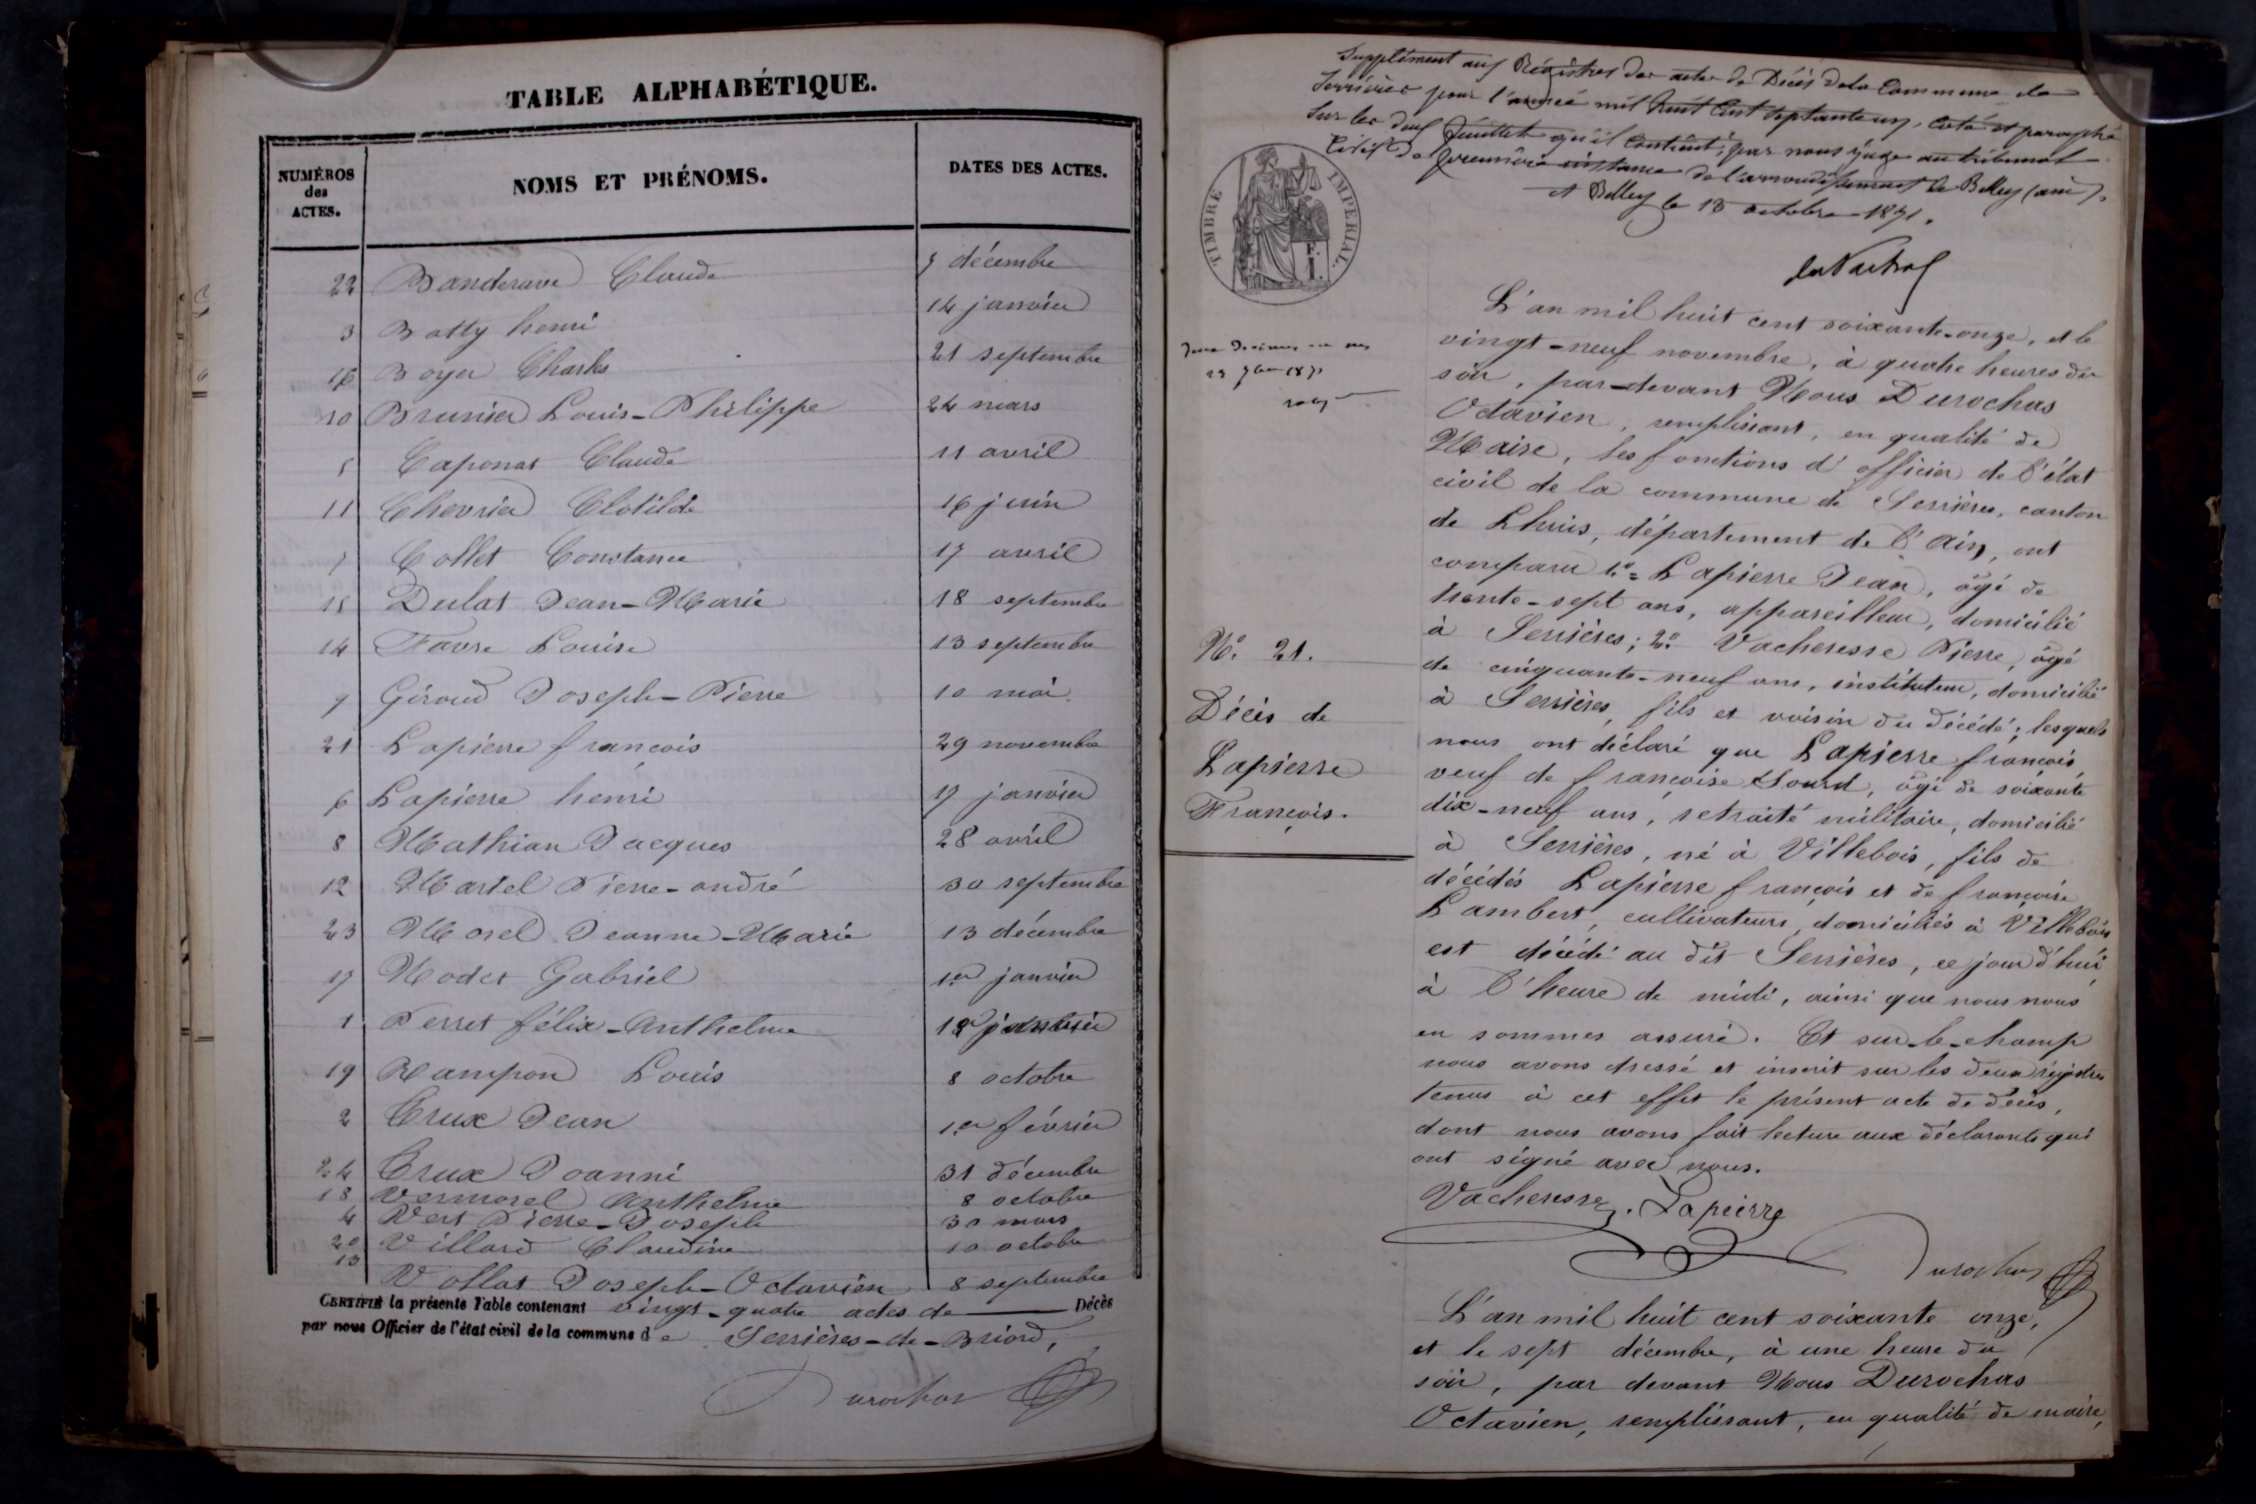 TABLE ALPHABÉTIQUE.
NUMÉROS des ACTES.
NOMS ET PRÉNOMS.
DATES DES ACTES.
22 Banderave Claude 7 décembre
3 Batty henri 14 janvier
16 Boyer Charles 21 septembre
10 Brunier Louis-Philippe 24 mars
5 Caponat Claude 11 avril
11 Chevrier Clotilde 16 juin
7 Collet Constance 17 avril
15 Dulat Jean-Marie 18 septembre
14 Favre Louise 13 septembre
9 Giroud Joseph-Pierre 10 mai
21 Lapierre françois 29 novembre
6 Lapierre henri 17 janvier
8 Mathian Jacques 28 avril
12 Martel Pierre-andré 30 septembre
23 Morel Jeanne-Marie 13 décembre
17 Nodet Gabriel 1er janvier
1 Perret félix-Anthelme
19 Rampon Louis 8 octobre
2 Crux Jean 1er février
24 Crux Joanni 31 décembre
18 Vermorel Anthelme 8 octobre
4 Vert Pierre-Joseph 30 mars
20 Villard Claudine 10 octobre
13 Vollat Joseph-Octavien 8 septembre
CERTIFIÉ la présente Table contenant vingt-quatre actes de Décès
par nous Officier de l'état civil de la commune de Serrières-de-Briord,
Durochas
Supplément aux Régistres des actes de Décès de la Commune de
Serrières pour l'année mil huit Cent septante un, coté et paraphé
Sur les deux feuillets qu'il contient, par nous juge au tribunal
Civil de première instance de l'arrondissement de Belley (ain).
A Belley le 18 octobre 1871.
TIMBRE IMPÉRIAL.
L'an mil huit cent soixante-onze, et le
vingt-neuf novembre, à quatre heures du
soir, par-devant Nous Durochas
Octavien, remplissant, en qualité de
Maire, les fonctions d'officier de l'état
civil de la commune de Serrières, canton
de Lhuis, département de l'Ain, ont
comparu 1.º Lapierre Jean, âgé de
trente-sept ans, appareilleur, domicilié
à Serrières; 2.º Vacheresse Pierre, âgé
de cinquante-neuf ans, instituteur, domicilié
à Serrières, fils et voisin du décédé; lesquels
nous ont déclaré que Lapierre françois,
veuf de françoise Sourd, âgé de soixante
dix-neuf ans, retraité militaire, domicilié
à Serrières, né à Villebois, fils de
décédés Lapierre françois et de françoise
Lambert, cultivateurs, domiciliés à Villebois
est décédé au dit Serrières, ce jourd'hui
à l'heure de midi, ainsi que nous nous
en sommes assuré. Et sur-le-champ
nous avons dressé et inscrit sur les deux régistres
tenus à cet effet le présent acte de décès,
dont nous avons fait lecture aux déclarants qui
ont signé avec nous.
Vacheresse. Lapierre
Durochas
N.º 21.
Décès de
Lapierre
François.
L'an mil huit cent soixante onze,
et le sept décembre, à une heure du
soir, par devant Nous Durochas
Octavien, remplissant, en qualité de maire,